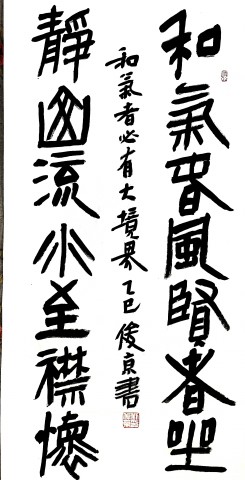 和氣春風賢者坐
和氣者必有大境界乙巳俊京書
靜山流水至襟懷